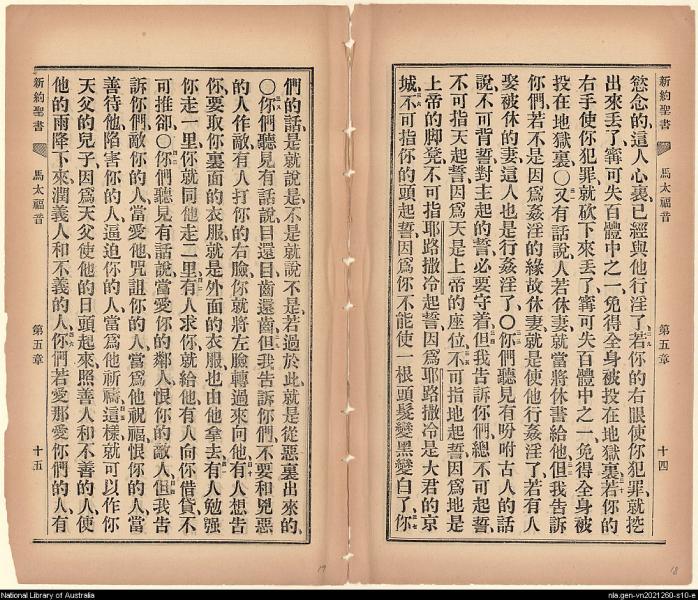 新約聖書 馬太福音 第五章 十四
慾念的、這人心裏、已經與他行淫了、若你的右眼使你犯罪、就挖
出來丟了、寧可失百體中之一、免得全身被投在地獄裏、若你的
右手使你犯罪、就砍下來丟了、寧可失百體中之一、免得全身被
投在地獄裏、〇又有話說、人若休妻、就當將休書給他、但我告訴
你們、若不是因爲姦淫的緣故休妻、就是使他行姦淫了、若有人
娶被休的妻、這人也是行姦淫了、〇你們聽見有吩咐古人的話
說、不可背誓、對主起的誓、必要守着、但我告訴你們、總不可起誓、
不可指天起誓、因爲天是上帝的座位、不可指地起誓、因爲地是
上帝的脚凳、不可指耶路撒冷起誓、因爲耶路撒冷是大君的京
城、不可指你的頭起誓、因爲你不能使一根頭髮變黑變白了、你
們的話、是就說是、不是就說不是、若過於此、就是從惡裏出來的、
〇你們聽見有話說、目還目、齒還齒、但我告訴你們、不要和兇惡
的人作敵、有人打你的右臉、你就將左臉轉過來向他、有人想告
你、要取你裏面的衣服、就是外面的衣服也由他拿去、有人勉强
你走一里、你就同他走二里、有人求你、就給他、有人向你借貸、不
可推卻、〇你們聽見有話說、當愛你的鄰人、恨你的敵人、但我告
訴你們、敵你的人、當愛他、咒詛你的人、當爲他祝福、恨你的人、當
善待他、陷害你的人、逼迫你的人、當爲他祈禱、這樣就可以作你
天父的兒子、因爲天父使他的日頭起來、照善人和不善的人、使
他的雨降下來、潤義人和不義的人、你們若愛那愛你們的人、有
新約聖書 馬太福音 第五章 十五
19
18
National Library of Australia
nla.gen-vn2021260-s10-e